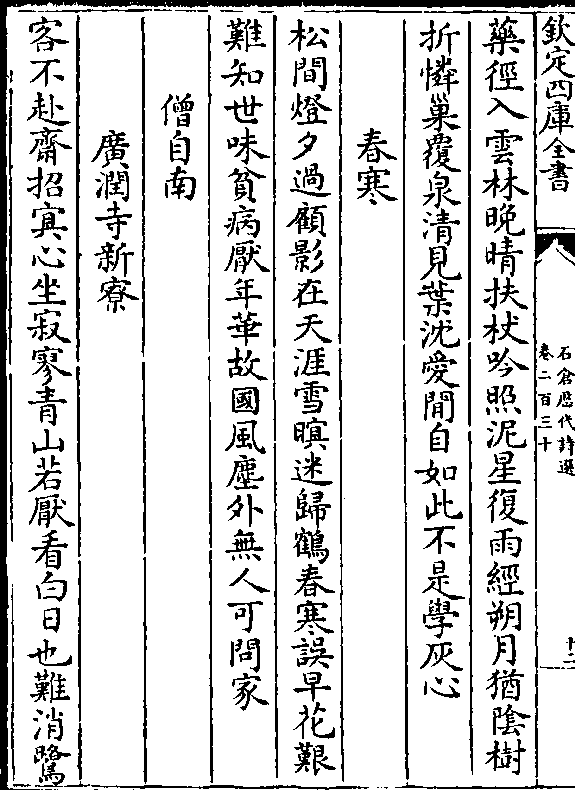 欽定四庫全書
石倉歷代詩選
卷二百三十
十二
藥徑入雲林晚晴扶杖吟照泥星復雨經朔月猶陰樹
折憐巢覆泉清見葉沈愛閒自如此不是學灰心
春寒
松間燈夕過顧影在天涯雪暝迷歸鶴春寒誤早花艱
難知世味貧病厭年華故國風塵外無人可問家
僧自南
廣潤寺新寮
客不赴齋招寘心坐寂寥青山若厭看白日也難消鷺